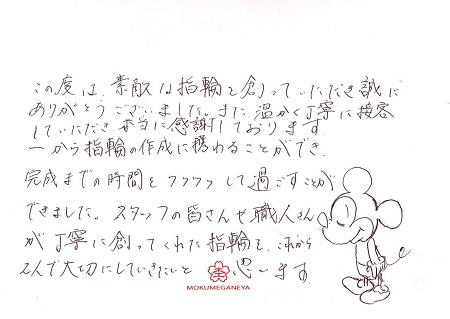 この度は、素敵な指輪を創っていただき誠に
ありがとうございました。また、温かく丁寧に接客
していただき、本当に感謝しております。
一から指輪の作成に携わることができ、
完成までの時間をワクワクして過ごすことが
できました。スタッフの皆さんや職人さん
が丁寧に創ってくれた指輪を、これから
2人で大切にしていきたいと思います
MOKUMEGANEYA